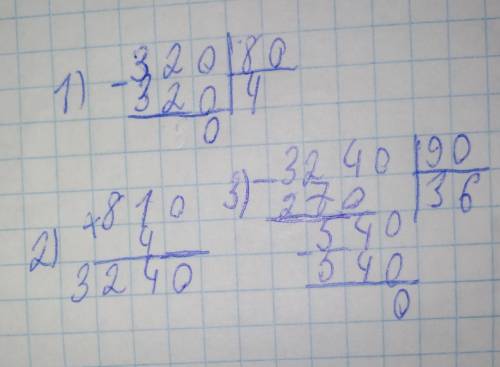 1) - 320 | 80
320 | 4
0
2) × 810
4
3240
3) - 3240 | 90
270 | 36
- 540
540
0